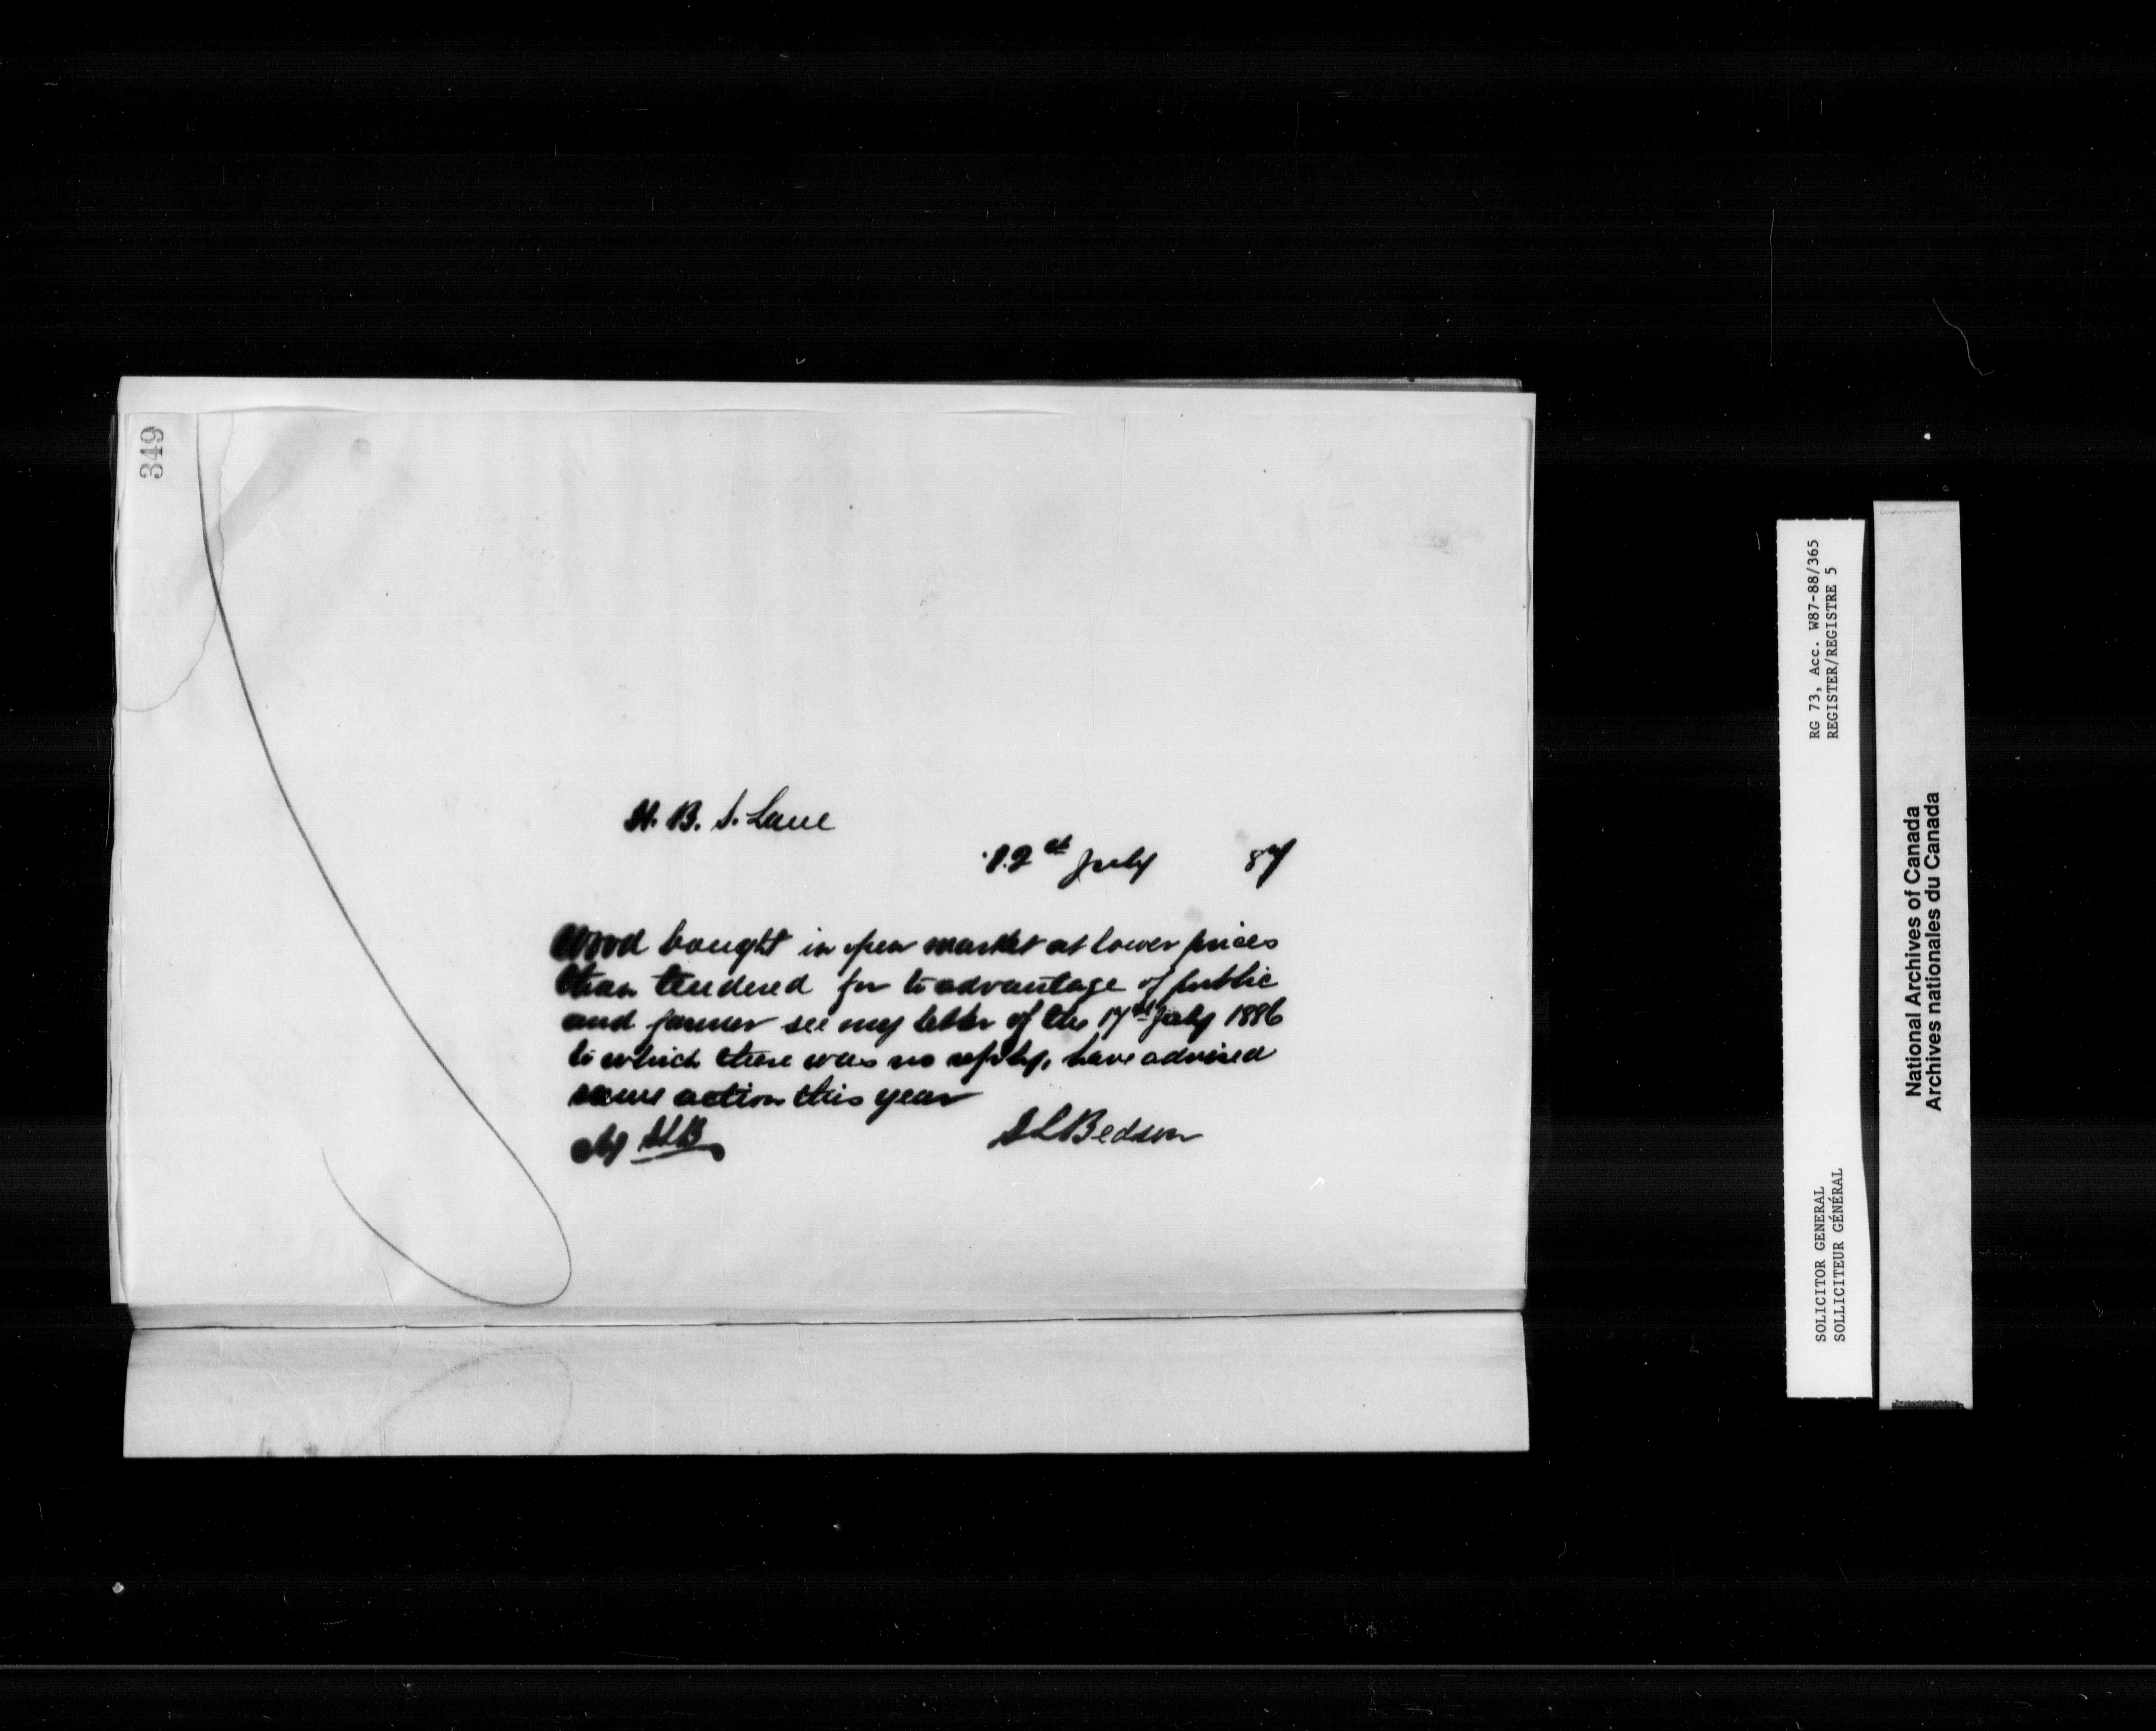 349
H. B. S. Lane
12th July 87
Wood bought in open market at lower prices
than tendered for to advantage of public
and farmer see my letter of the 17th July 1886
to which there was no reply, have advised
same action this year
SLB
SLBedson
RG 73, Acc. W87-88/365
REGISTER/REGISTRE 5
SOLICITOR GENERAL
SOLLICITEUR GÉNÉRAL
National Archives of Canada
Archives nationales du Canada